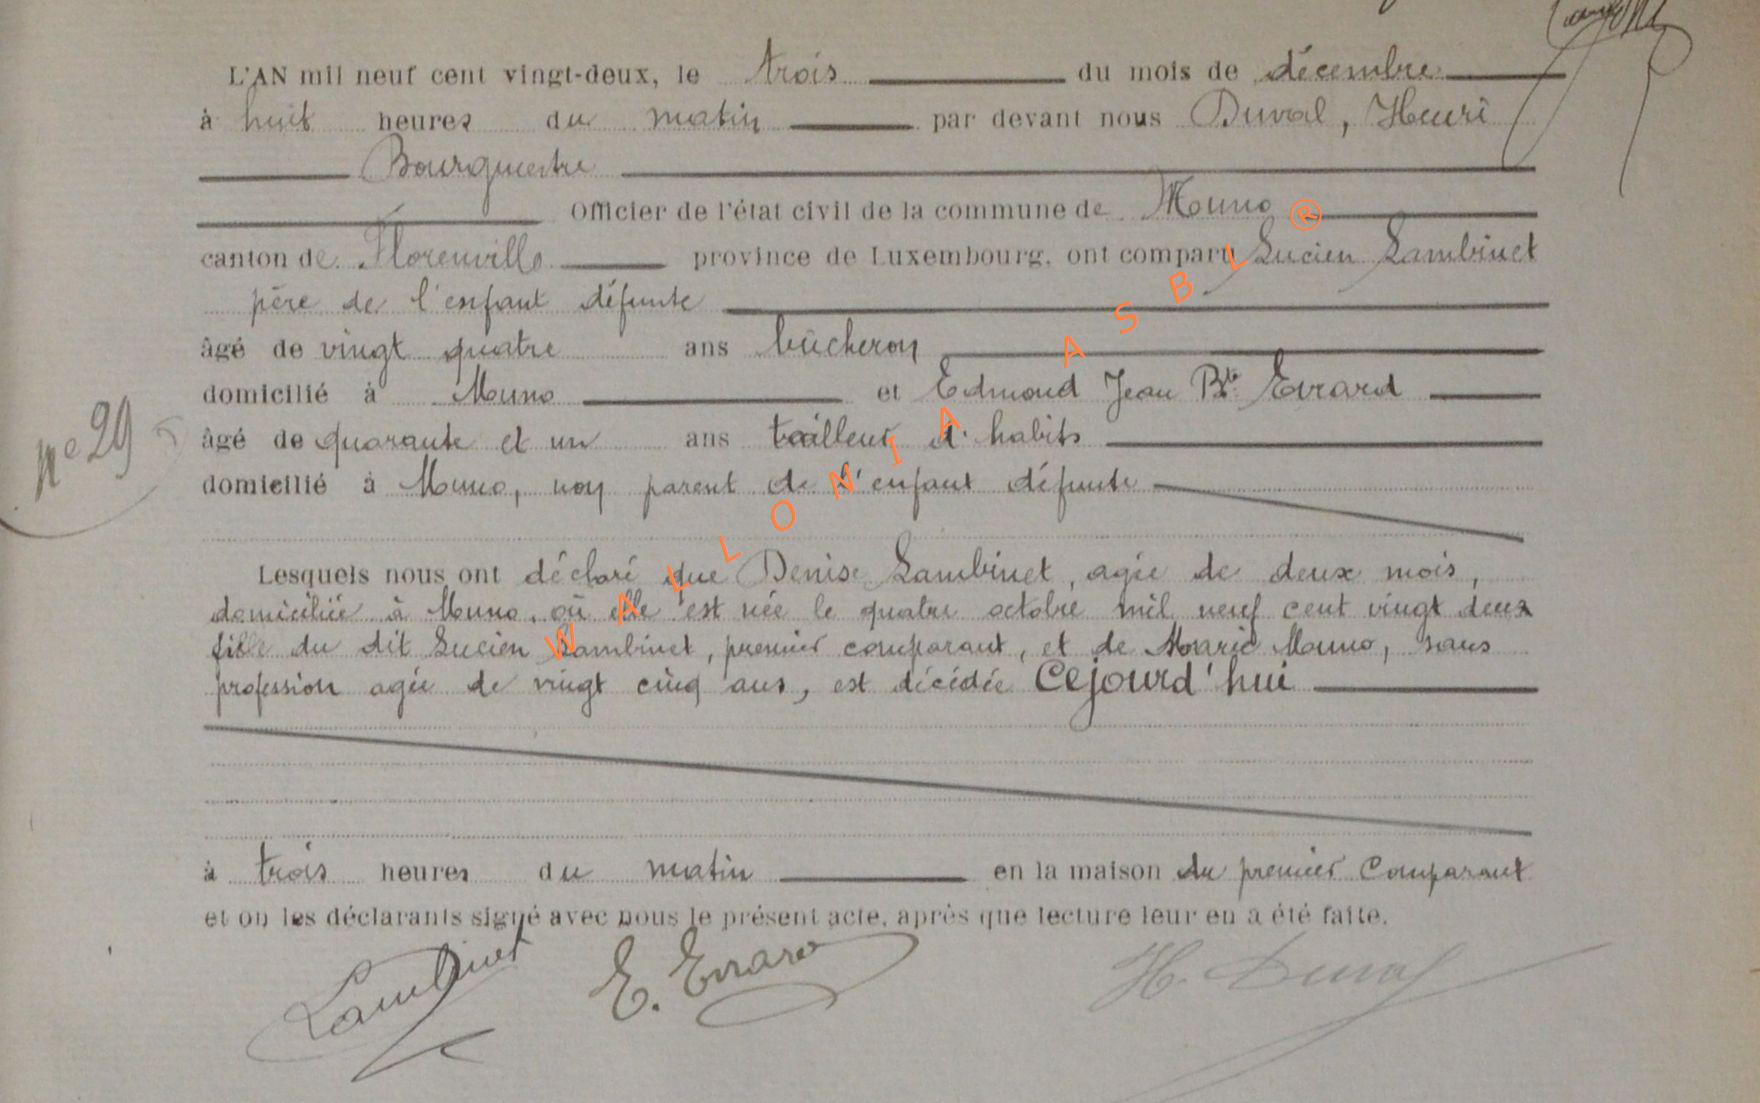 L'AN mil neuf cent vingt-deux, le trois du mois de décembre
à huit heures du matin par devant nous Duval, Henri
Bourgmestre
Officier de l'état civil de la commune de Muno
canton de Florenville province de Luxembourg, ont comparu Lucien Lambinet
père de l'enfant défunte
âgé de vingt quatre ans bûcheron
domicilié à Muno et Edmond Jean Bte Evrard
n° 29
âgé de quarante et un ans tailleur d'habits
domicilié à Muno, non parent de l'enfant défunte
Lesquels nous ont déclaré que Denise Lambinet, agée de deux mois,
domiciliée à Muno, où elle est née le quatre octobre mil neuf cent vingt deux
fille du dit Lucien Lambinet, premier comparant, et de Marie Muno, sans
profession agée de vingt cinq ans, est décédée Cejourd'hui
à trois heures du matin en la maison du premier Comparant
et on les déclarants signé avec nous le présent acte, après que lecture leur en a été faite.
Lambinet E. Evrard H. Duval
WALLONIA ASBL ®